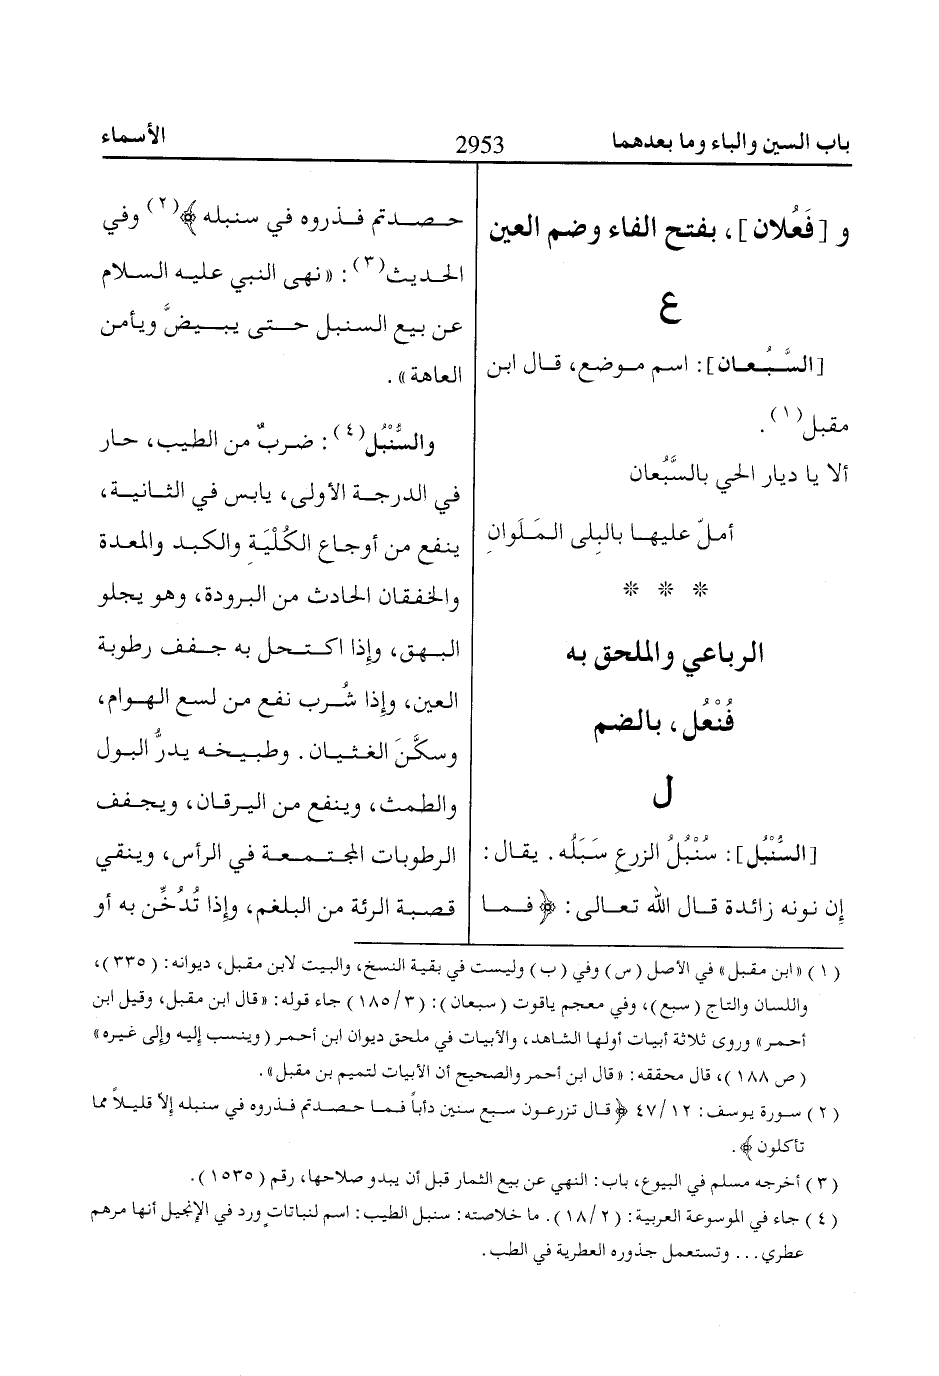 باب السين والباء وما بعدهما
2953
الأسماء
و [فَعُلان]، بفتح الفاء وضم العين
ع
[السَّبُعان]: اسم موضع، قال ابن
مقبل(١).
ألا يا ديار الحي بالسَّبُعان
أملّ عليها بالبِلى المَلَوانِ
* * *
الرباعي والملحق به
فُنْعُل، بالضم
ل
[السُّنْبُل]: سُنْبُلُ الزرع سَبَلُه. يقال:
إن نونه زائدة قال الله تعالى: ﴿فما
حصدتم فذروه في سنبله﴾(٢) وفي
الحديث(٣): «نهى النبي عليه السلام
عن بيع السنبل حتى يبيضَّ ويأمن
العاهة».
والسُّنْبُل(٤): ضربٌ من الطيب، حار
في الدرجة الأولى، يابس في الثانية،
ينفع من أوجاع الكُلْيَة والكبِد والمعدة
والخفقان الحادث من البرودة، وهو يجلو
البهق، وإذا اكتحل به جفف رطوبة
العين، وإذا شُرب نفع من لسع الهوام،
وسكَّنَ الغثيان. وطبيخه يدرُّ البول
والطمث، وينفع من اليرقان، ويجفف
الرطوبات المجتمعة في الرأس، وينقي
قصبة الرئة من البلغم، وإذا تُدُخِّن به أو
(١) «ابن مقبل» في الأصل (س) وفي (ب) وليست في بقية النسخ، والبيت لابن مقبل، ديوانه: (٣٣٥)،
واللسان والتاج (سبع)، وفي معجم ياقوت (سبعان): (٣/١٨٥) جاء قوله: «قال ابن مقبل، وقيل ابن
أحمر» وروى ثلاثة أبيات أولها الشاهد، والأبيات في ملحق ديوان ابن أحمر (وينسب إليه وإلى غيره»
(ص ١٨٨)، قال محققه: «قال ابن أحمر والصحيح أن الأبيات لتميم بن مقبل».
(٢) سورة يوسف: ١٢/٤٧ ﴿قال تزرعون سبع سنين دأباً فما حصدتم فذروه في سنبله إلاّ قليلاً مما
تأكلون﴾.
(٣) أخرجه مسلم في البيوع، باب: النهي عن بيع الثمار قبل أن يبدو صلاحها، رقم (١٥٣٥).
(٤) جاء في الموسوعة العربية: (٢/١٨). ما خلاصته: سنبل الطيب: اسم لنباتات ورد في الإنجيل أنها مرهم
عطري... وتستعمل جذوره العطرية في الطب.